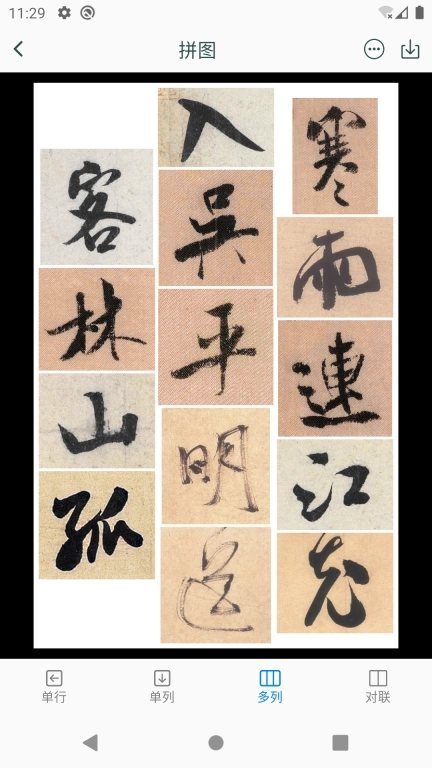 11:29
拼图
寒雨連江夜
入吳平明送
客林山孤
单行 单列 多列 对联